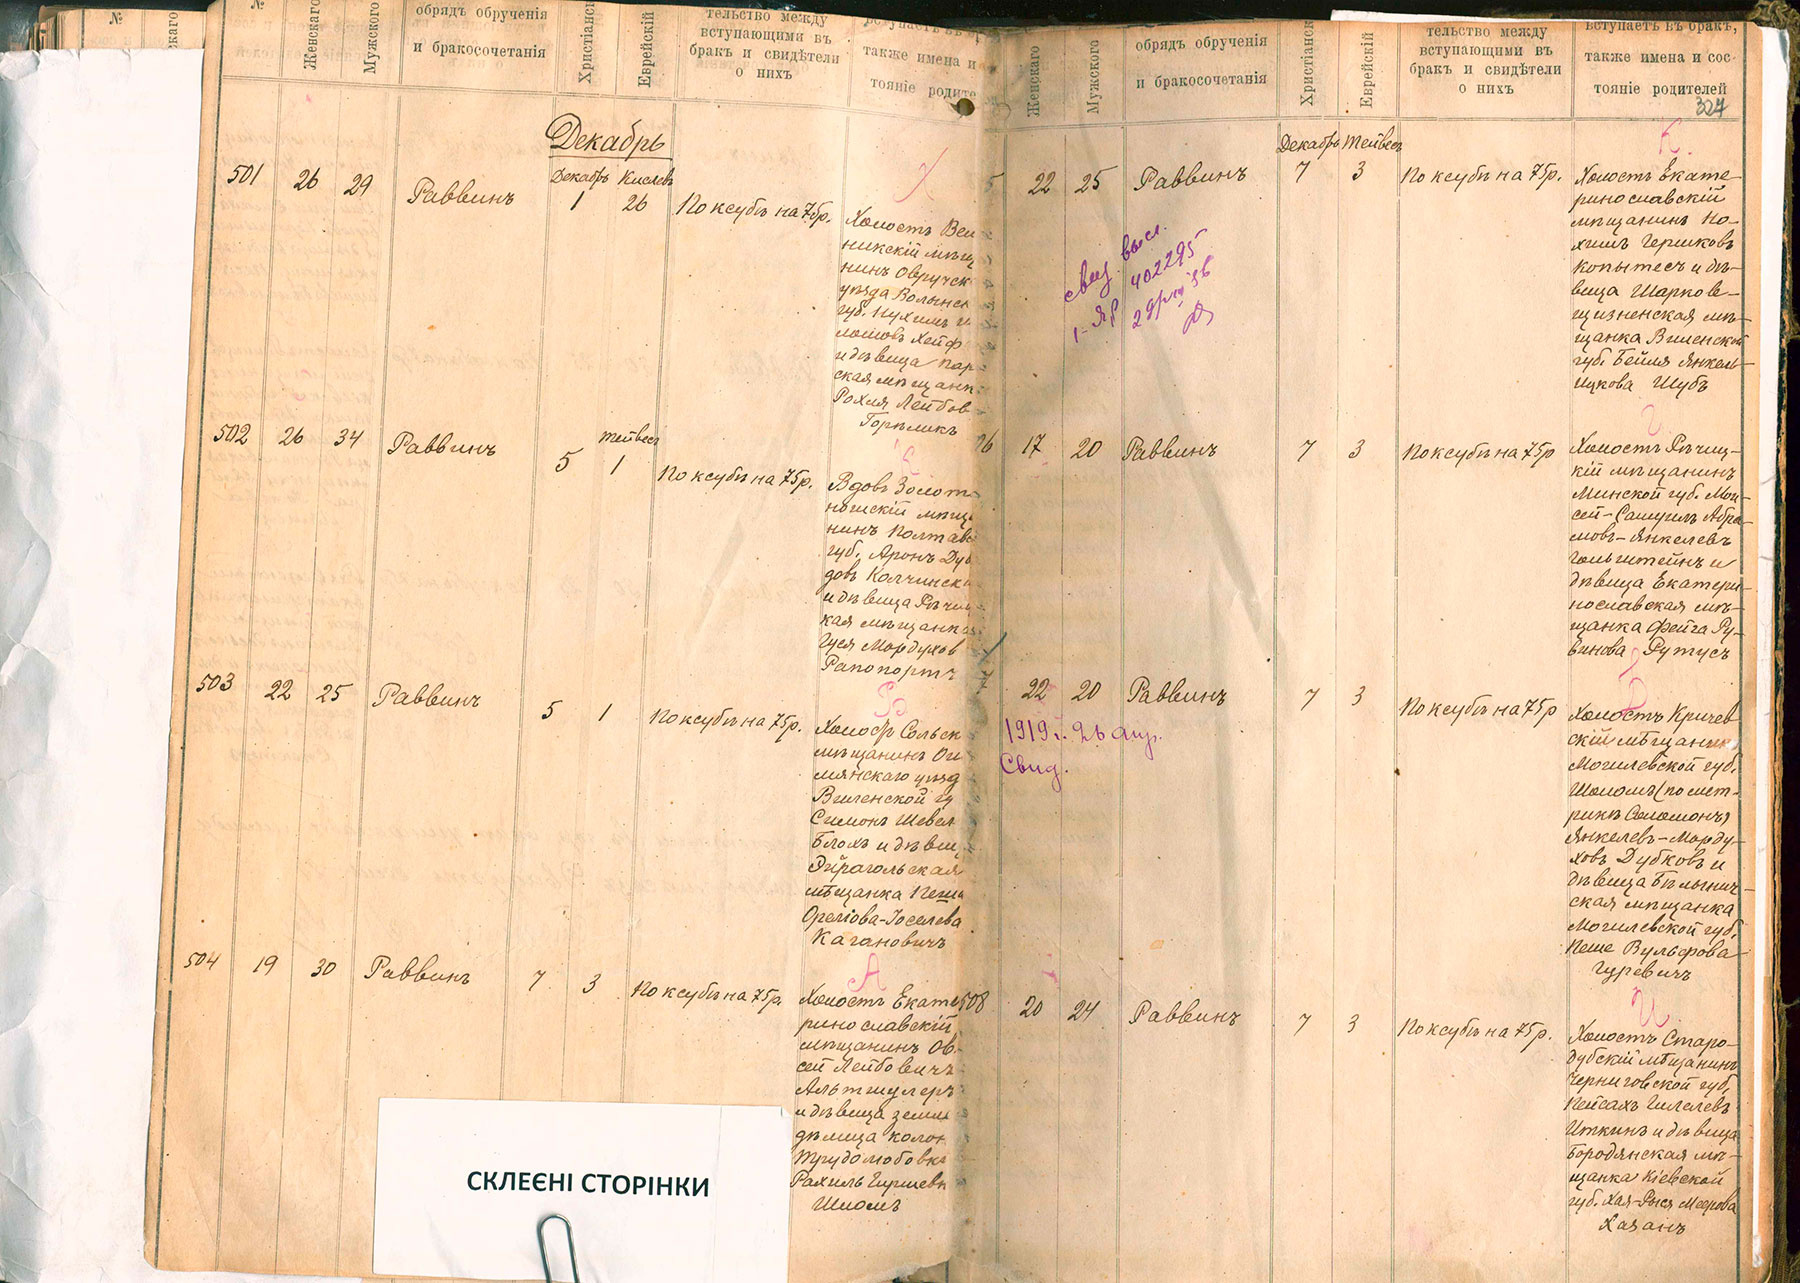 №
Женскаго
Мужского
обрядъ обрученія
и бракосочетанія
Христіанс
Еврейскій
тельство между
вступающими въ
бракъ и свидѣтели
о нихъ
также имена и
тояніе родите
Декабрь
501
26
29
Раввинъ
Декабрь
1
Кислевъ
26
По ксубѣ на 75р.
Холостъ
никскій мѣщ
нинъ Овручск
уѣзда Волынс
губ. Нухимъ
Хейф
и дѣвица
ская мѣщанк
Рохля Лейбов
Горѣликъ
502
26
34
Раввинъ
5
Тейвесъ
1
По ксубѣ на 75р.
Вдовъ Золот
ношскій мѣщ
нинъ Полтавс
губ. Аронъ Ду
довъ Колчинск
и дѣвица Рѣчиц
кая мѣщанка
Гуся Мордухов
Рапопортъ
503
22
25
Раввинъ
5
1
По ксубѣ на 75р.
Б
Холостъ Сольск
мѣщанинъ Ош
мянскаго уѣзд
Виленской гу
Симонъ Шевел
Блохъ и дѣвиц
Эйрагольская
мѣщанка Пеша
Орелiова-Іоселева
Кагановичъ
504
19
30
Раввинъ
7
3
По ксубѣ на 75р.
А
Холостъ Екате
ринославскій
мѣщанинъ Ов
сей Лейбовичъ
Альтшулеръ
и дѣвица земле
дѣлица колон
Трудолюбовка
Рахиль Гиршевн
Шломъ
СКЛЕЄНІ СТОРІНКИ
Женскаго
Мужского
обрядъ обрученія
и бракосочетанія
Христіанск
Еврейскій
тельство между
вступающими въ
бракъ и свидѣтели
о нихъ
вступаетъ въ бракъ,
также имена и сос
тояніе родителей
324
5
22
25
Раввинъ
Декабрь
7
Тейвесъ
3
По ксубѣ на 75р.
К.
Холостъ Екате-
ринославскій
мѣщанинъ Но-
химъ Гершковъ
Копытесъ и дѣ-
вица Шарков-
щизненская мѣ-
щанка Виленской
губ. Бейля Янкель-
Ицкова Шубъ
свид. высл.
402295
06
17
20
Раввинъ
7
3
По ксубѣ на 75р
Г
Холостъ Рѣчиц-
кій мѣщанинъ
Минской губ. Мои-
сей-Самуилъ Абра-
мовъ-Янкелевъ
Гольштейнъ и
дѣвица Екатери-
нославская мѣ-
щанка Фейга Ру-
винова Рутусъ
22
20
Раввинъ
7
3
По ксубѣ на 75р
Д
1919 г. 26 апр.
Свид.
Холостъ Кричев
скій мѣщанинъ
Могилевской губ.
Шоломъ (по мет-
рикѣ Соломонъ)
Янкелевъ-Морду-
ховъ Дубковъ и
дѣвица Бѣлынич-
ская мѣщанка
Могилевской губ.
Пеше Вульфова
Гуревичъ
508
20
24
Раввинъ
7
3
По ксубѣ на 75р.
И
Холостъ Старо-
дубскій мѣщанинъ
Черниговской губ.
Пейсахъ Гилелевъ
Иткинъ и дѣвица
Бородянская мѣ-
щанка Кіевской
губ. Хая-Рыся Меерова
Хазанъ